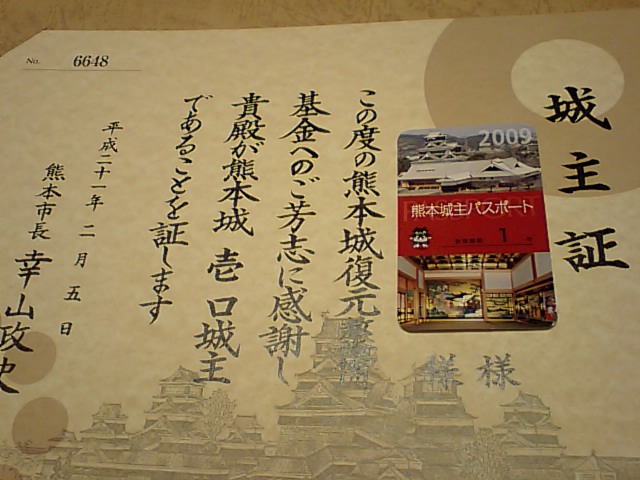 No. 6648
城主証
様
この度の熊本城復元整備
基金へのご芳志に感謝し
貴殿が熊本城 壱口城主
であることを証します
平成二十一年 二月五日
熊本市長 幸山政史
2009
熊本城主パスポート
1